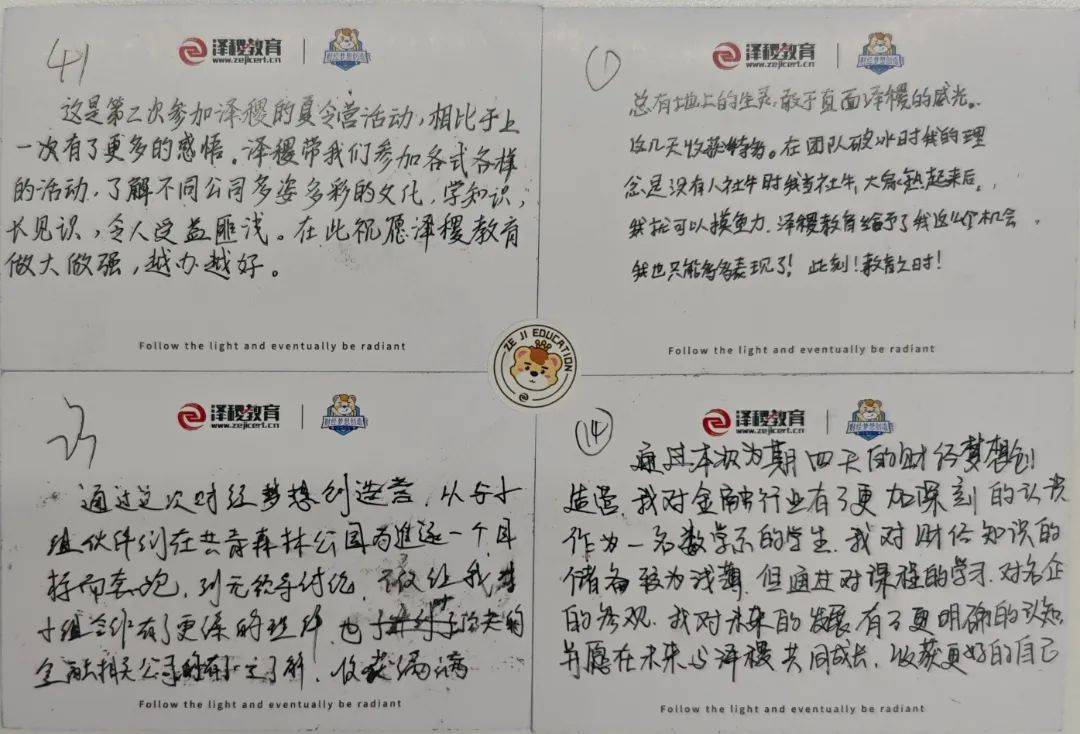 41
泽稷教育
www.zejicert.cn
财经梦想创造营
这是第二次参加泽稷的夏令营活动，相比于上
一次有了更多的感悟。泽稷带我们参加各式各样
的活动，了解不同公司多姿多彩的文化，学知识，
长见识，令人受益匪浅。在此祝愿泽稷教育
做大做强，越办越好。
Follow the light and eventually be radiant
①
泽稷教育
www.zejicert.cn
财经梦想创造营
总有地上的生灵，敢于直面泽稷的威光。
这几天收获特多。在团队破冰时我的理
念是没有人社牛时我当社牛，大家熟起来后，
我就可以摸鱼力．泽稷教育给予了我这个机会，
我也只能多多表现了！此刻！教育之时！
Follow the light and eventually be radiant
ZE JI EDUCATION
23
泽稷教育
www.zejicert.cn
财经梦想创造营
通过这次财经梦想创造营，从与小
组伙伴们在共青森林公园为追逐一个目
标而奔跑，到无领导讨论，不仅让我
小组合作有了更深的理解，也
金融相关公司有了了解，收获满满
Follow the light and eventually be radiant
⑭
泽稷教育
www.zejicert.cn
财经梦想创造营
通过本次为期四天的财经梦想创
造营，我对金融行业有了更加深刻的认识
作为一名数学系的学生，我对财经知识的
储备较为浅薄，但通过对课程的学习，对名企
的参观，我对未来的发展有了更明确的认知，
并愿在未来与泽稷共同成长，收获更好的自己
Follow the light and eventually be radiant